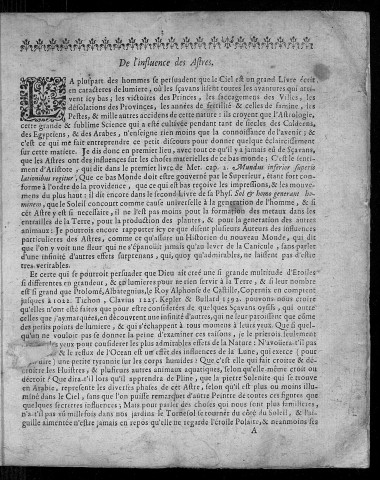 De l'influence des Astres.
LA pluspart des hommes se persuadent que le Ciel est un grand Livre écrit
en caracteres de lumiere, où les sçavans lisent toutes les avantures qui arri-
vent icy bas; les victoires des Princes, les saccagemens des Villes, les
désolations des Provinces, les années de fertilité & celles de famine, les
Pestes, & mille autres accidens de cette nature: ils croyent que l'Astrologie,
cette grande & sublime Science qui a esté cultivée pendant tant de siecles des Caldéens,
des Egyptiens, & des Arabes, n'enseigne rien moins que la connoissance de l'avenir; & c'
est ce qui me fait entreprendre ce petit discours pour donner quelque éclaircissement
sur cette matiere. Je dis donc en premier lieu, avec tout ce qu'il y a jamais eû de Sçavans,
que les Astres ont des influences sur les choses materielles de ce bas monde; C'est le senti-
ment d'Aristote, qui dit dans le premier livre de Met. cap. 2. Mundus inferior superis
lationibus regitur; Que ce bas Monde doit estre gouverné par le Superieur, étant fort con-
forme à l'ordre de la providence, que ce qui est bas reçoive les impressions, & les mouve-
mens du plus haut; il dit encore dans le second Livre de sa Phys. Sol & homo generant ho-
minem, que le Soleil concourt comme cause universelle à la generation de l'homme, & si
cét Astre y est si necessaire, il ne l'est pas moins pour la formation des metaux dans les
entrailles de la Terre, pour la production des plantes, & pour la generation des autres
animaux: Je pourrois encore rapporter icy ce que disent plusieurs Auteurs des influences
particulieres des Astres, comme ce qu'assure un Historien du nouveau Monde, qui dit
que l'on y voit une fleur qui ne s'épanoüit jamais qu'au lever de la Canicule, sans parler
d'une infinité d'autres effets surprenans, qui, quoy qu'admirables, ne laissent pas d'estre
tres-veritables.
Et certe qui se pourroit persuader que Dieu ait créé une si grande multitude d'Etoiles
si differentes en grandeur, & en lumieres pour ne rien servir à la Terre, & si leur nombre
est si grand que Ptolomé, Albategnius, le Roy Alphonse de Castille, Copernic en comptent
jusques à 1022. Tichon, Clavius 1225. Kepler & Bullard 1392. pouvons-nous croire
qu'elles n'ont esté faites que pour estre considerées de quelques Sçavans oysifs, qui outre
celles que j'ay marquées, en découvrent une infinité d'autres, qui ne leur paroissent que comme des
petits points de lumiere, & qui s'échappent à tous momens à leurs yeux. Que si quel-
qu'un ne vouloit pas se donner la peine d'examiner ces raisons, je le prierois seulement
d'ouvrir les yeux pour considerer les plus admirables effets de la Nature: N'avoüera-t'il pas
& le reflux de l'Ocean est un effet des influences de la Lune, qui exerce pour
une petite tyrannie sur les corps humides: Que c'est elle qui fait croître & dé-
croître les Huistres, & plusieurs autres animaux aquatiques, selon qu'elle mesme croit ou
décroit? Que dira-t'il lors qu'il apprendra de Pline, que la pierre Solenite qui se trouve
en Arabie, represente les diverses phases de cét Astre, selon qu'il est plus ou moins illu-
miné dans le Ciel, sans que l'on puisse remarquer d'autre Peintre de toutes ces figures que
quelques secrettes influences; Mais pour parler des choses qui nous sont plus familieres,
n'a-t'il pas vû millefois dans nos jardins le Tornesol se tourner du côté du Soleil, & l'ai-
guille aimentée n'est jamais en repos qu'elle ne regarde l'étoile Polaire, & neanmoins ses
A